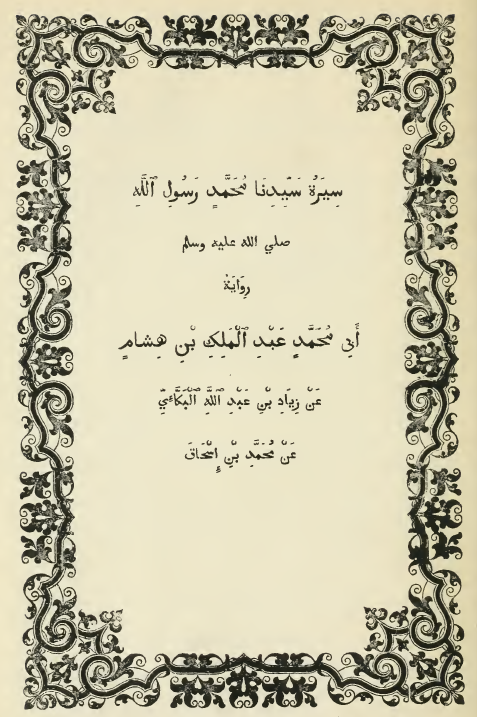 سِيرَةُ سَيِّدِنَا مُحَمَّدٍ رَسُولِ ٱللَّهِ
صلي الله عليه وسلم
رِوَايَةُ
أَبِى مُحَمَّدٍ عَبْدِ ٱلْمَلِكِ بْنِ هِشَامٍ
عَنْ زِيَادِ بْنِ عَبْدِ ٱللَّهِ ٱلْبَكَّاءِيِّ
عَنْ مُحَمَّدِ بْنِ إِسْحَاقَ